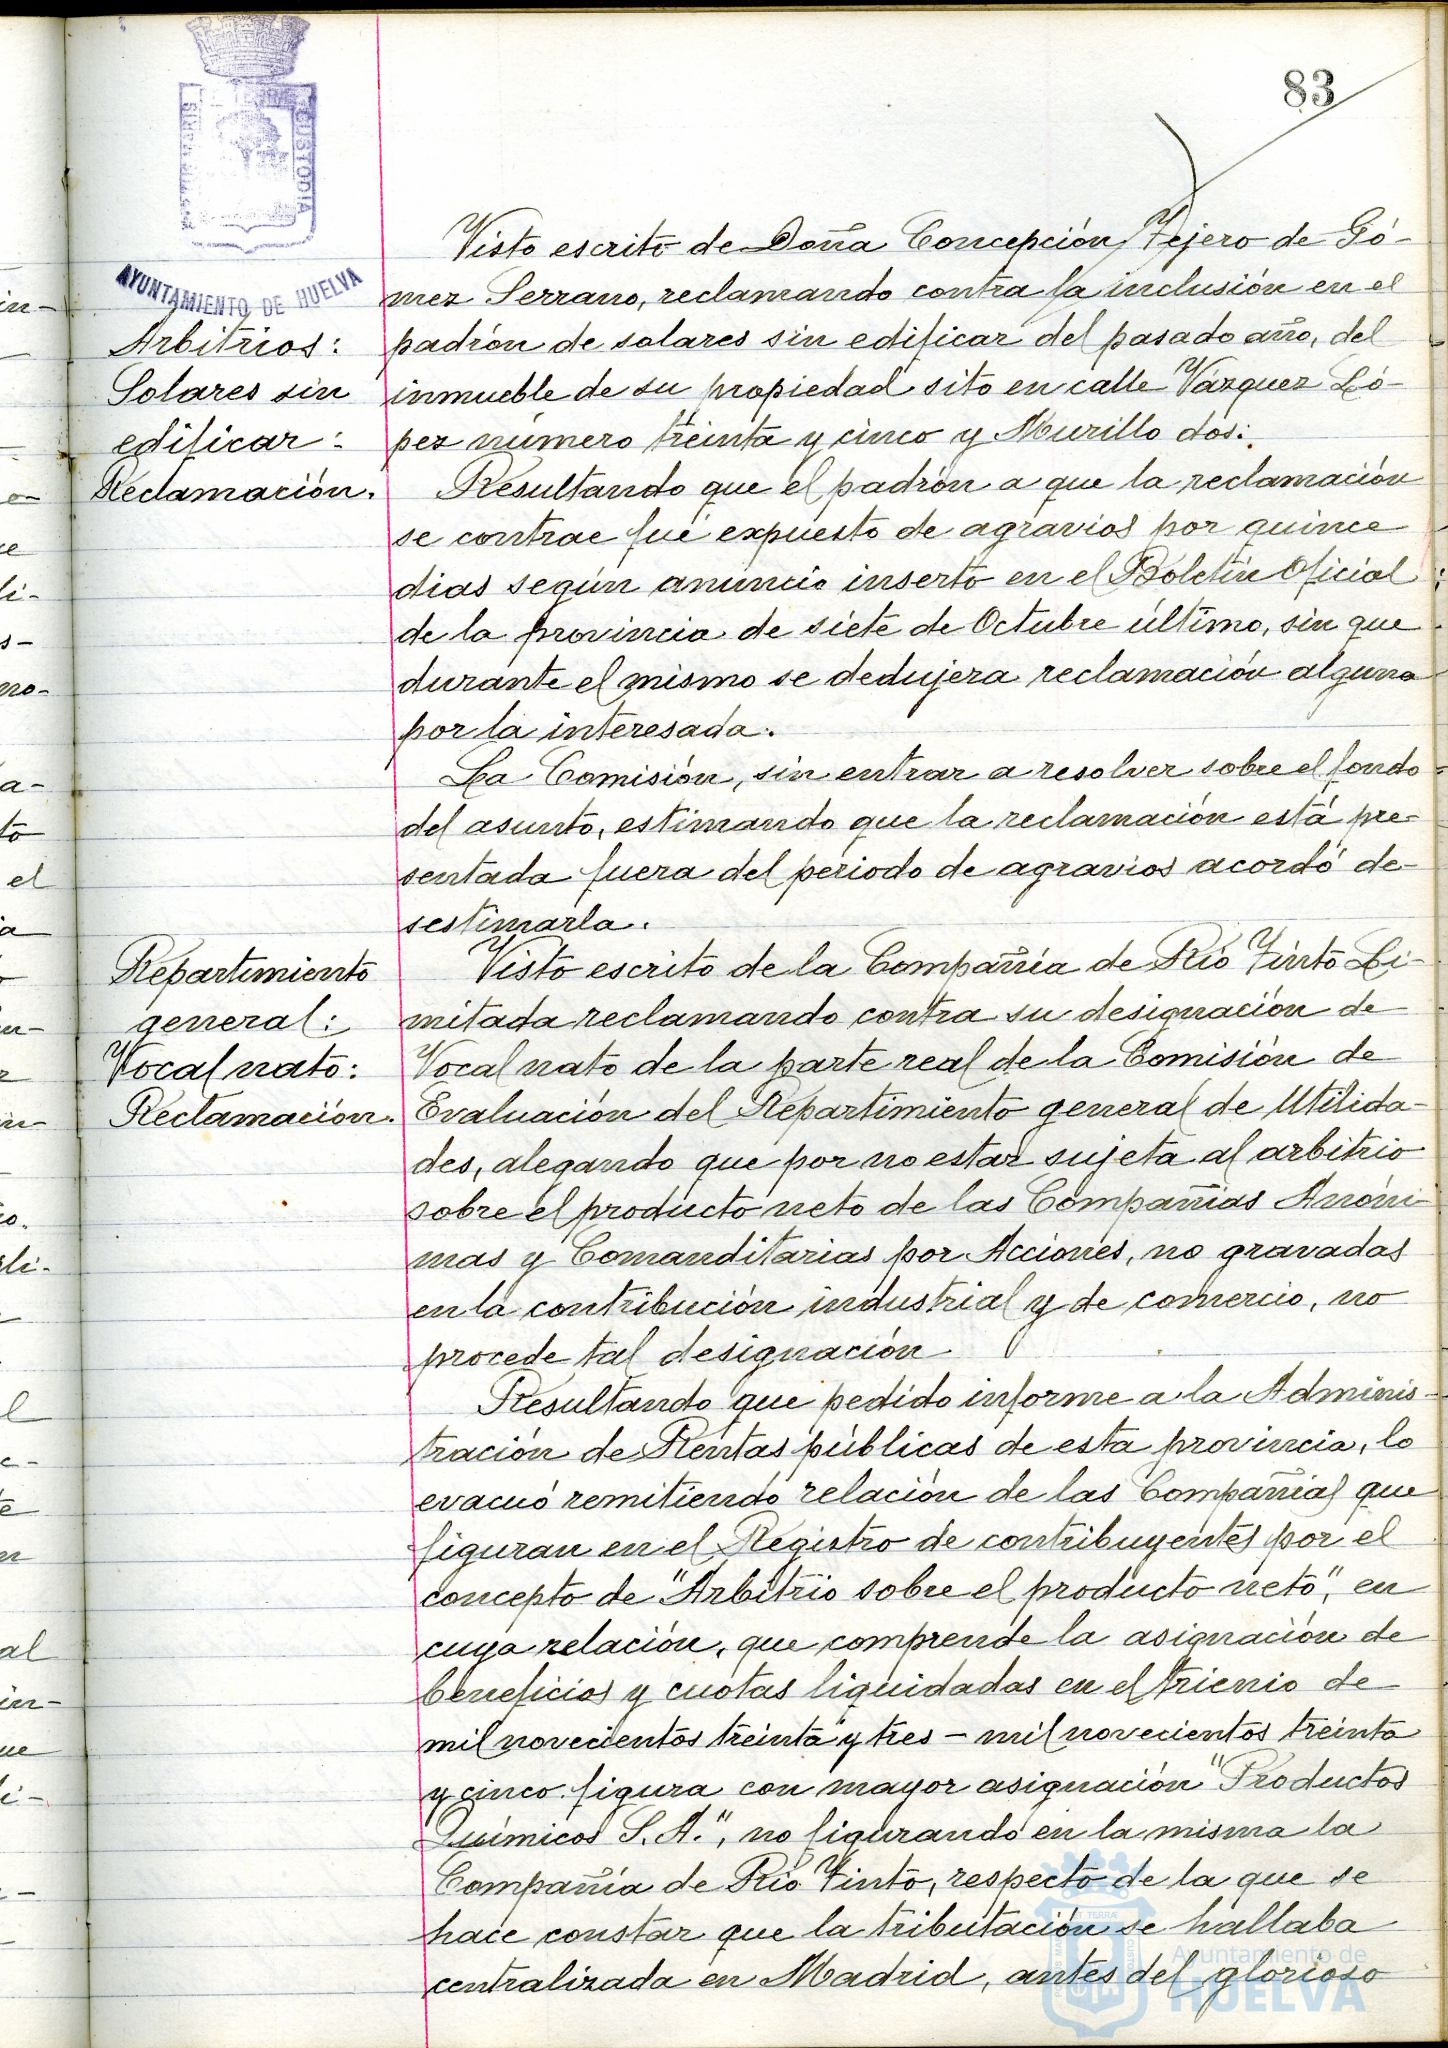 83
AYUNTAMIENTO DE HUELVA
CUSTODIA
Arbitrios:
Solares sin
edificar:
Reclamación.
Visto escrito de Doña Concepción Tejero de Gó-
mez Serrano, reclamando contra la inclusión en el
padrón de solares sin edificar del pasado año, del
inmueble de su propiedad sito en calle Vázquez Ló-
pez número treinta y cinco y Murillo dos:
Resultando que el padrón a que la reclamación
se contrae fué expuesto de agravios por quince
dias según anuncio inserto en el Boletín Oficial
de la provincia de siete de Octubre último, sin que
durante el mismo se dedujera reclamación alguna
por la interesada.
La Comisión, sin entrar a resolver sobre el fondo
del asunto, estimando que la reclamación está pre-
sentada fuera del periodo de agravios acordó de-
sestimarla.
Repartimiento
general:
Vocal nato:
Reclamación.
Visto escrito de la Compañía de Río Tinto Li-
mitada reclamando contra su designación de
Vocal nato de la parte real de la Comisión de
Evaluación del Repartimiento general de Utilida-
des, alegando que por no estar sujeta al arbitrio
sobre el producto neto de las Compañías Anóni-
mas y Comanditarias por Acciones, no gravadas
en la contribución industrial y de comercio, no
procede tal designación.
Resultando que pedido informe a la Adminis-
tración de Rentas públicas de esta provincia, lo
evacuó remitiendo relación de las Compañías que
figuran en el Registro de contribuyentes por el
concepto de "Arbitrio sobre el producto neto", en
cuya relación, que comprende la asignación de
beneficios y cuotas liquidadas en el trienio de
mil novecientos treinta y tres - mil novecientos treinta
y cinco figura con mayor asignación "Productos
Químicos S. A.", no figurando en la misma la
Compañía de Río Tinto, respecto de la que se
hace constar que la tributación se hallaba
centralizada en Madrid, antes del glorioso
Ayuntamiento de
HUELVA